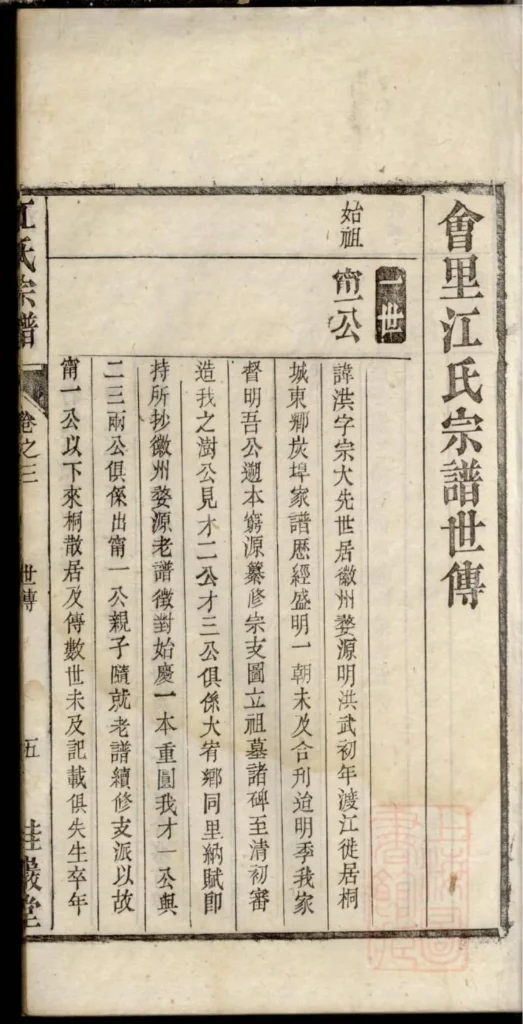 會里江氏宗譜世傳
一世
始祖
甯一公
諱洪字宗大先世居徽州婺源明洪武初年渡江徙居桐
城東鄉炭埠家譜歷經盛明一朝未及合刊迨明季我家
督明吾公遡本窮源纂修宗支圖立祖墓諸碑至清初審
造我之澍公見才二公才三公俱係大宥鄉同里納賦即
持所抄徽州婺源老譜徵對始慶一本重圓我才一公與
二三兩公俱係出甯一公親子隨就老譜續修支派以故
甯一公以下來桐散居及傳數世未及記載俱失生卒年
江氏宗譜
卷之三
世傳
五
桂巖堂